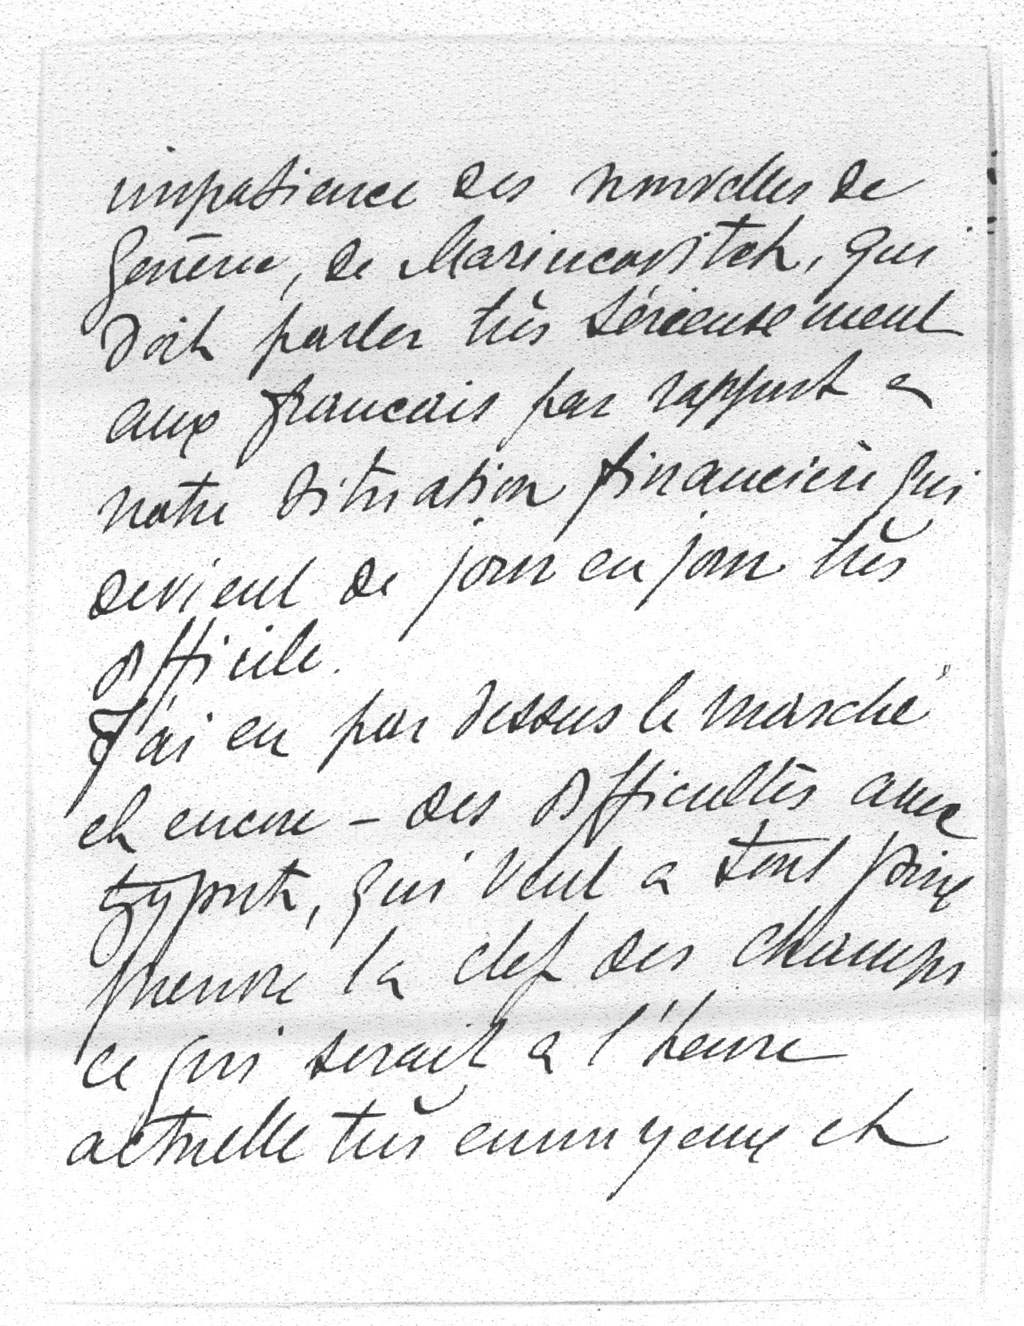 impatience des nouvelles de
Genève, de Marincovitch, qui
doit parler très sérieusement
aux francais par rapport a
notre situation financière qui
devient de jour en jour très
difficile.
J'ai eu par dessus le marché
et encore – des difficultés avec
qui veut a tout prix
prendre la clef des champs
ce qui serait a l'heure
actuelle très ennuyeux et